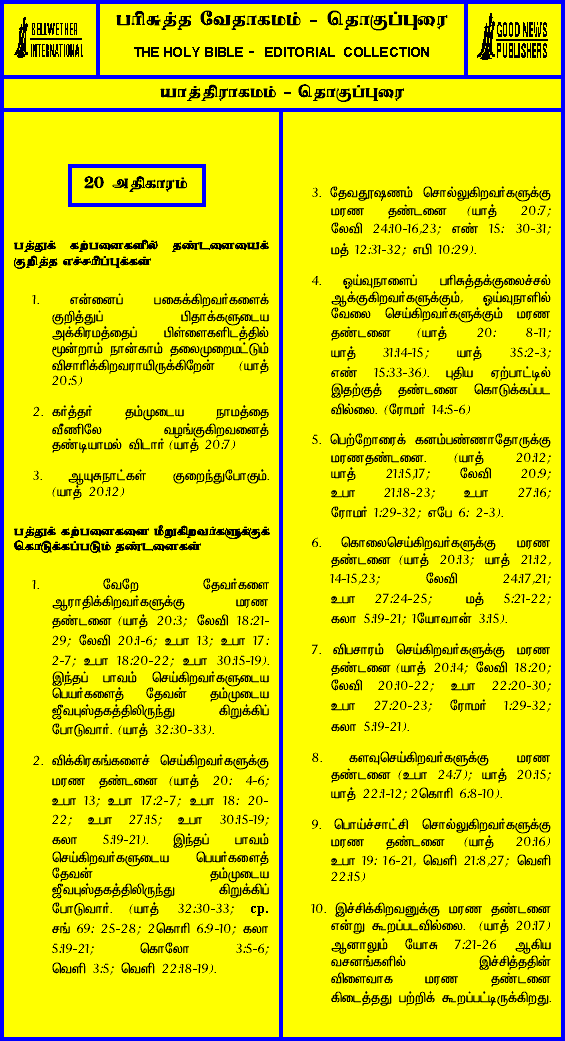 BELLWETHER
INTERNATIONAL
பரிசுத்த வேதாகமம் - தொகுப்புரை
THE HOLY BIBLE - EDITORIAL COLLECTION
GOOD NEWS
PUBLISHERS
யாத்திராகமம் - தொகுப்புரை
20 அதிகாரம்
பத்துக் கற்பனைகளில் தண்டனையைக்
குறித்த எச்சரிப்புக்கள்
1. என்னைப் பகைக்கிறவர்களைக்
குறித்துப் பிதாக்களுடைய
அக்கிரமத்தைப் பிள்ளைகளிடத்தில்
மூன்றாம் நான்காம் தலைமுறைமட்டும்
விசாரிக்கிறவராயிருக்கிறேன் (யாத்
20:5)
2. கர்த்தர் தம்முடைய நாமத்தை
வீணிலே வழங்குகிறவனைத்
தண்டியாமல் விடார் (யாத் 20:7)
3. ஆயுசுநாட்கள் குறைந்துபோகும்.
(யாத் 20:12)
பத்துக் கற்பனைகளை மீறுகிறவர்களுக்குக்
கொடுக்கப்படும் தண்டனைகள்
1. வேறே தேவர்களை
ஆராதிக்கிறவர்களுக்கு மரண
தண்டனை (யாத் 20:3; லேவி 18:21-
29; லேவி 20:1-6; உபா 13; உபா 17:
2-7; உபா 18:20-22; உபா 30:15-19).
இந்தப் பாவம் செய்கிறவர்களுடைய
பெயர்களைத் தேவன் தம்முடைய
ஜீவபுஸ்தகத்திலிருந்து கிறுக்கிப்
போடுவார். (யாத் 32:30-33).
2. விக்கிரகங்களைச் செய்கிறவர்களுக்கு
மரண தண்டனை (யாத் 20: 4-6;
உபா 13; உபா 17:2-7; உபா 18: 20-
22; உபா 27:15; உபா 30:15-19;
கலா 5:19-21). இந்தப் பாவம்
செய்கிறவர்களுடைய பெயர்களைத்
தேவன் தம்முடைய
ஜீவபுஸ்தகத்திலிருந்து கிறுக்கிப்
போடுவார். (யாத் 32:30-33; cp.
சங் 69: 25-28; 2கொரி 6:9-10; கலா
5:19-21; கொலோ 3:5-6;
வெளி 3:5; வெளி 22:18-19).
3. தேவதூஷணம் சொல்லுகிறவர்களுக்கு
மரண தண்டனை (யாத் 20:7;
லேவி 24:10-16,23; எண் 15: 30-31;
மத் 12:31-32; எபி 10:29).
4. ஓய்வுநாளைப் பரிசுத்தக்குலைச்சல்
ஆக்குகிறவர்களுக்கும், ஓய்வுநாளில்
வேலை செய்கிறவர்களுக்கும் மரண
தண்டனை (யாத் 20: 8-11;
யாத் 31:14-15; யாத் 35:2-3;
எண் 15:33-36). புதிய ஏற்பாட்டில்
இதற்குத் தண்டனை கொடுக்கப்பட
வில்லை. (ரோமர் 14:5-6)
5. பெற்றோரைக் கனம்பண்ணாதோருக்கு
மரணதண்டனை. (யாத் 20:12;
யாத் 21:15,17; லேவி 20:9;
உபா 21:18-23; உபா 27:16;
ரோமர் 1:29-32; எபே 6: 2-3).
6. கொலைசெய்கிறவர்களுக்கு மரண
தண்டனை (யாத் 20:13; யாத் 21:12,
14-15,23; லேவி 24:17,21;
உபா 27:24-25; மத் 5:21-22;
கலா 5:19-21; 1யோவான் 3:15).
7. விபசாரம் செய்கிறவர்களுக்கு மரண
தண்டனை (யாத் 20:14; லேவி 18:20;
லேவி 20:10-22; உபா 22:20-30;
உபா 27:20-23; ரோமர் 1:29-32;
கலா 5:19-21).
8. களவுசெய்கிறவர்களுக்கு மரண
தண்டனை (உபா 24:7); யாத் 20:15;
யாத் 22:1-12; 2கொரி 6:8-10).
9. பொய்ச்சாட்சி சொல்லுகிறவர்களுக்கு
மரண தண்டனை (யாத் 20:16)
உபா 19: 16-21, வெளி 21:8,27; வெளி
22:15)
10. இச்சிக்கிறவனுக்கு மரண தண்டனை
என்று கூறப்படவில்லை. (யாத் 20:17)
ஆனாலும் யோசு 7:21-26 ஆகிய
வசனங்களில் இச்சித்ததின்
விளைவாக மரண தண்டனை
கிடைத்தது பற்றிக் கூறப்பட்டிருக்கிறது.